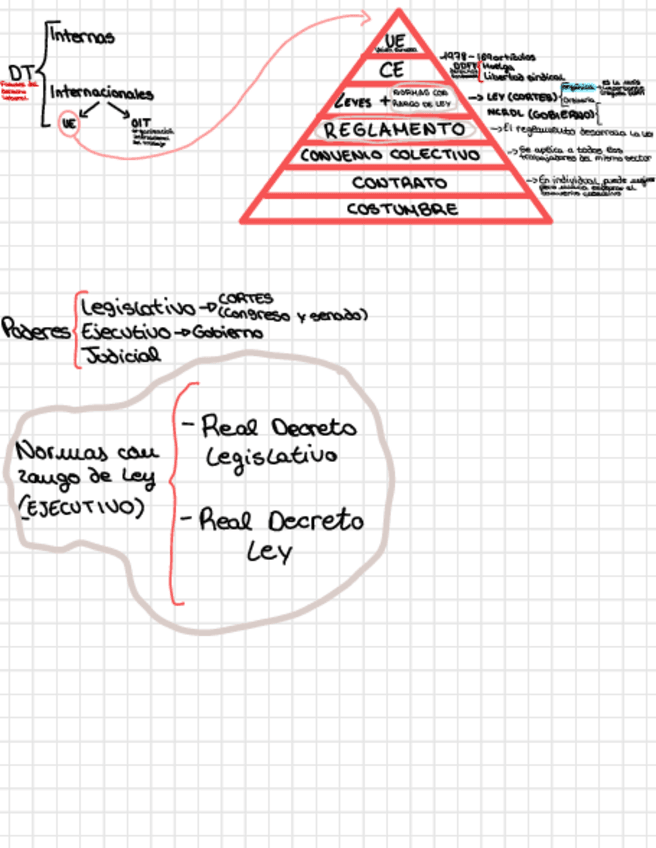 DT
Fuentes del
derecho
laboral
Internas
Internacionales
UE
OIT
organización
internacional
del trabajo
UE
CE
Leyes + NORMAS CON
RANGO DE LEY
REGLAMENTO
CONVENIO COLECTIVO
CONTRATO
COSTUMBRE
1978 - 169 artículos
DDFF Huelga
Libertad sindical
→ LEY (CORTES) orgánica
ordinaria
NCRDL (GOBIERNO)
→ El reglamento desarrolla la ley
→ Se aplica a todos los
trabajadores del mismo sector
→ En individual, puede mejorar
pero nunca
convenio colectivo
Poderes
Legislativo → CORTES
(Congreso y senado)
Ejecutivo → Gobierno
Judicial
Normas con
rango de Ley
(EJECUTIVO)
- Real Decreto
Legislativo
- Real Decreto
Ley